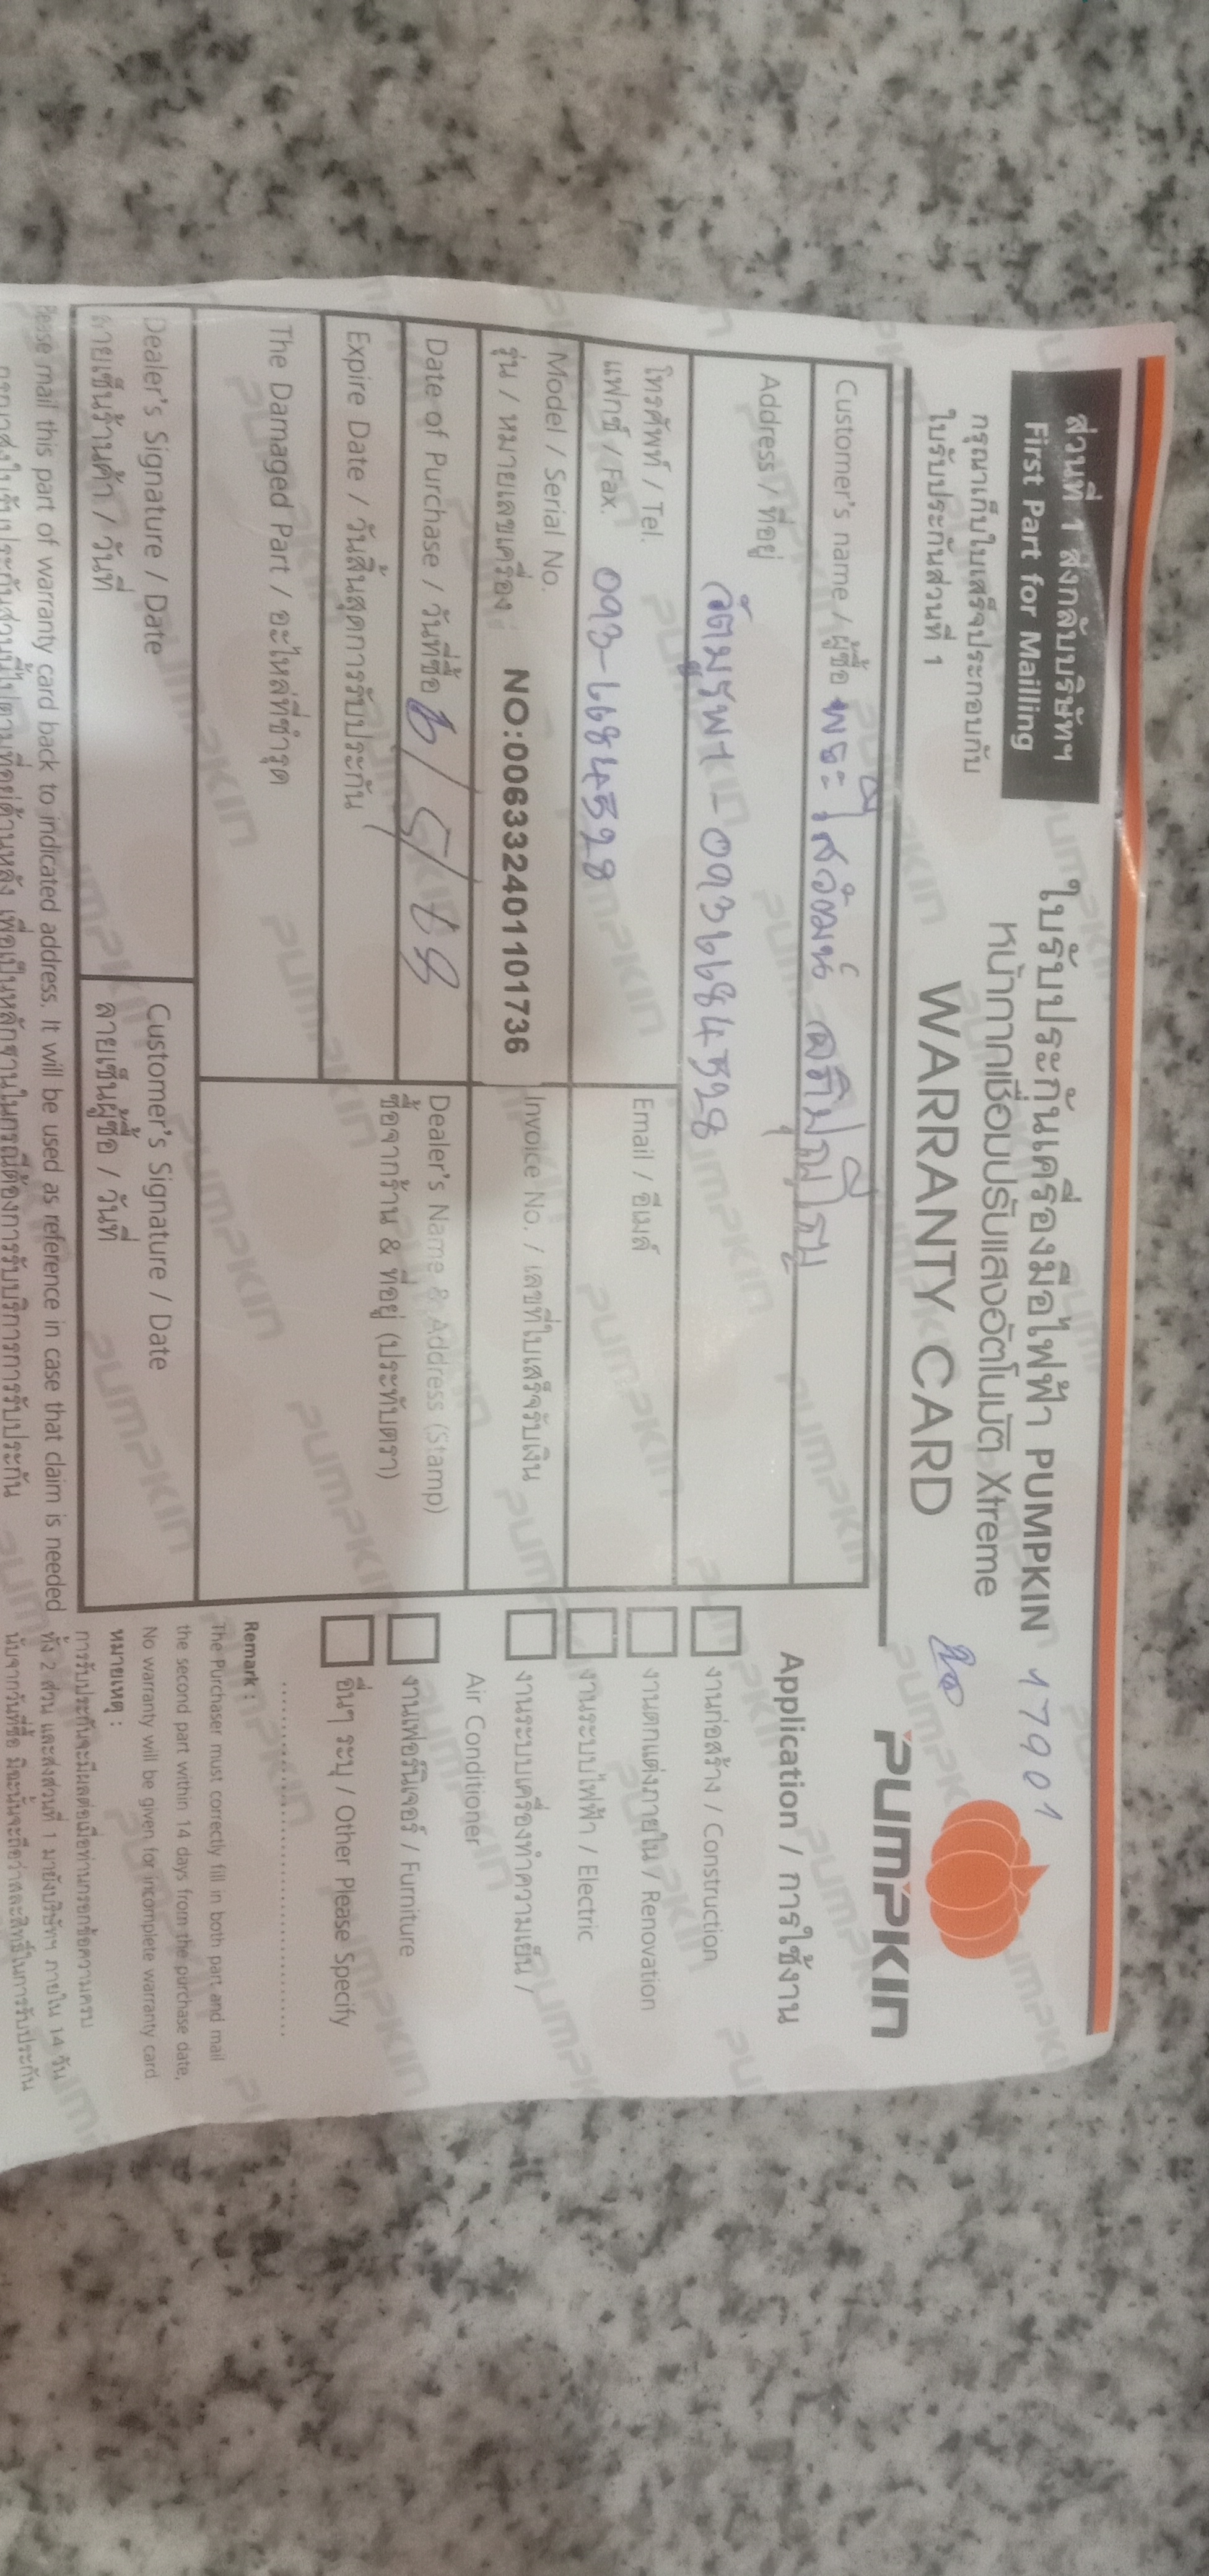 ส่วนที่ 1 ส่งกลับบริษัทฯ
First Part for Mailling
กรุณาเก็บใบเสร็จประกอบกับ
ใบรับประกันส่วนที่ 1
ใบรับประกันเครื่องมือไฟฟ้า PUMPKIN 17901
หน้ากากเชื่อมปรับแสงอัตโนมัติ Xtreme
WARRANTY CARD
PUMPKIN
Customer's name / ผู้ซื้อ
Address / ที่อยู่ - 0936684528
โทรศัพท์ / Tel.
แฟกซ์ / Fax. 093-6684528
Email / อีเมล์
Model / Serial No.
รุ่น / หมายเลขเครื่อง NO:006332401101736
Invoice No. / เลขที่ใบเสร็จรับเงิน
Date of Purchase / วันที่ซื้อ
Expire Date / วันสิ้นสุดการรับประกัน
Dealer's Name & Address (Stamp)
ชื่อจากร้าน & ที่อยู่ (ประทับตรา)
The Damaged Part / อะไหล่ที่ชำรุด
Dealer's Signature / Date
ลายเซ็นร้านค้า / วันที่
Customer's Signature / Date
ลายเซ็นผู้ซื้อ / วันที่
Please mail this part of warranty card back to indicated address. It will be used as reference in case that claim is needed
กรุณาส่งใบรับประกันส่วนนี้ไปตามที่อยู่ด้านหลัง เพื่อเป็นหลักฐานในกรณีต้องการรับบริการการรับประกัน
Application / การใช้งาน
งานก่อสร้าง / Construction
งานตกแต่งภายใน / Renovation
งานระบบไฟฟ้า / Electric
งานระบบเครื่องทำความเย็น /
Air Conditioner
งานเฟอร์นิเจอร์ / Furniture
อื่นๆ ระบุ / Other Please Specify
Remark :
The Purchaser must correctly fill in both part and mail
the second part within 14 days from the purchase date,
No warranty will be given for incomplete warranty card
หมายเหตุ :
การรับประกันจะมีผลต่อเมื่อท่านกรอกข้อความครบ
ทั้ง 2 ส่วน และส่งส่วนที่ 1 มายังบริษัทฯ ภายใน 14 วัน
นับจากวันที่ซื้อ มิฉะนั้นจะถือว่าสละสิทธิ์ในการรับประกัน